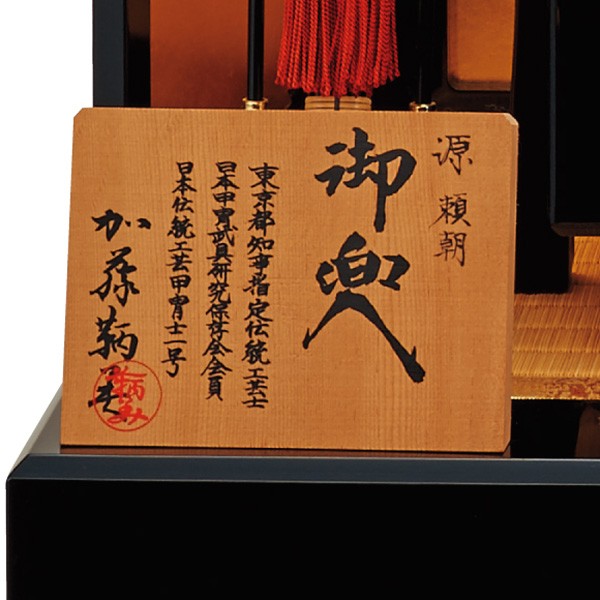 源頼朝
御兜
東京都知事指定伝統工芸士
日本甲冑武具研究保存会会員
日本伝統工芸甲冑士一号
加藤鞆美